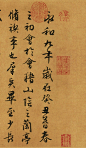 永和九年歲在癸丑暮春
之初會于會稽山陰之蘭亭
脩禊事也羣賢畢至少長